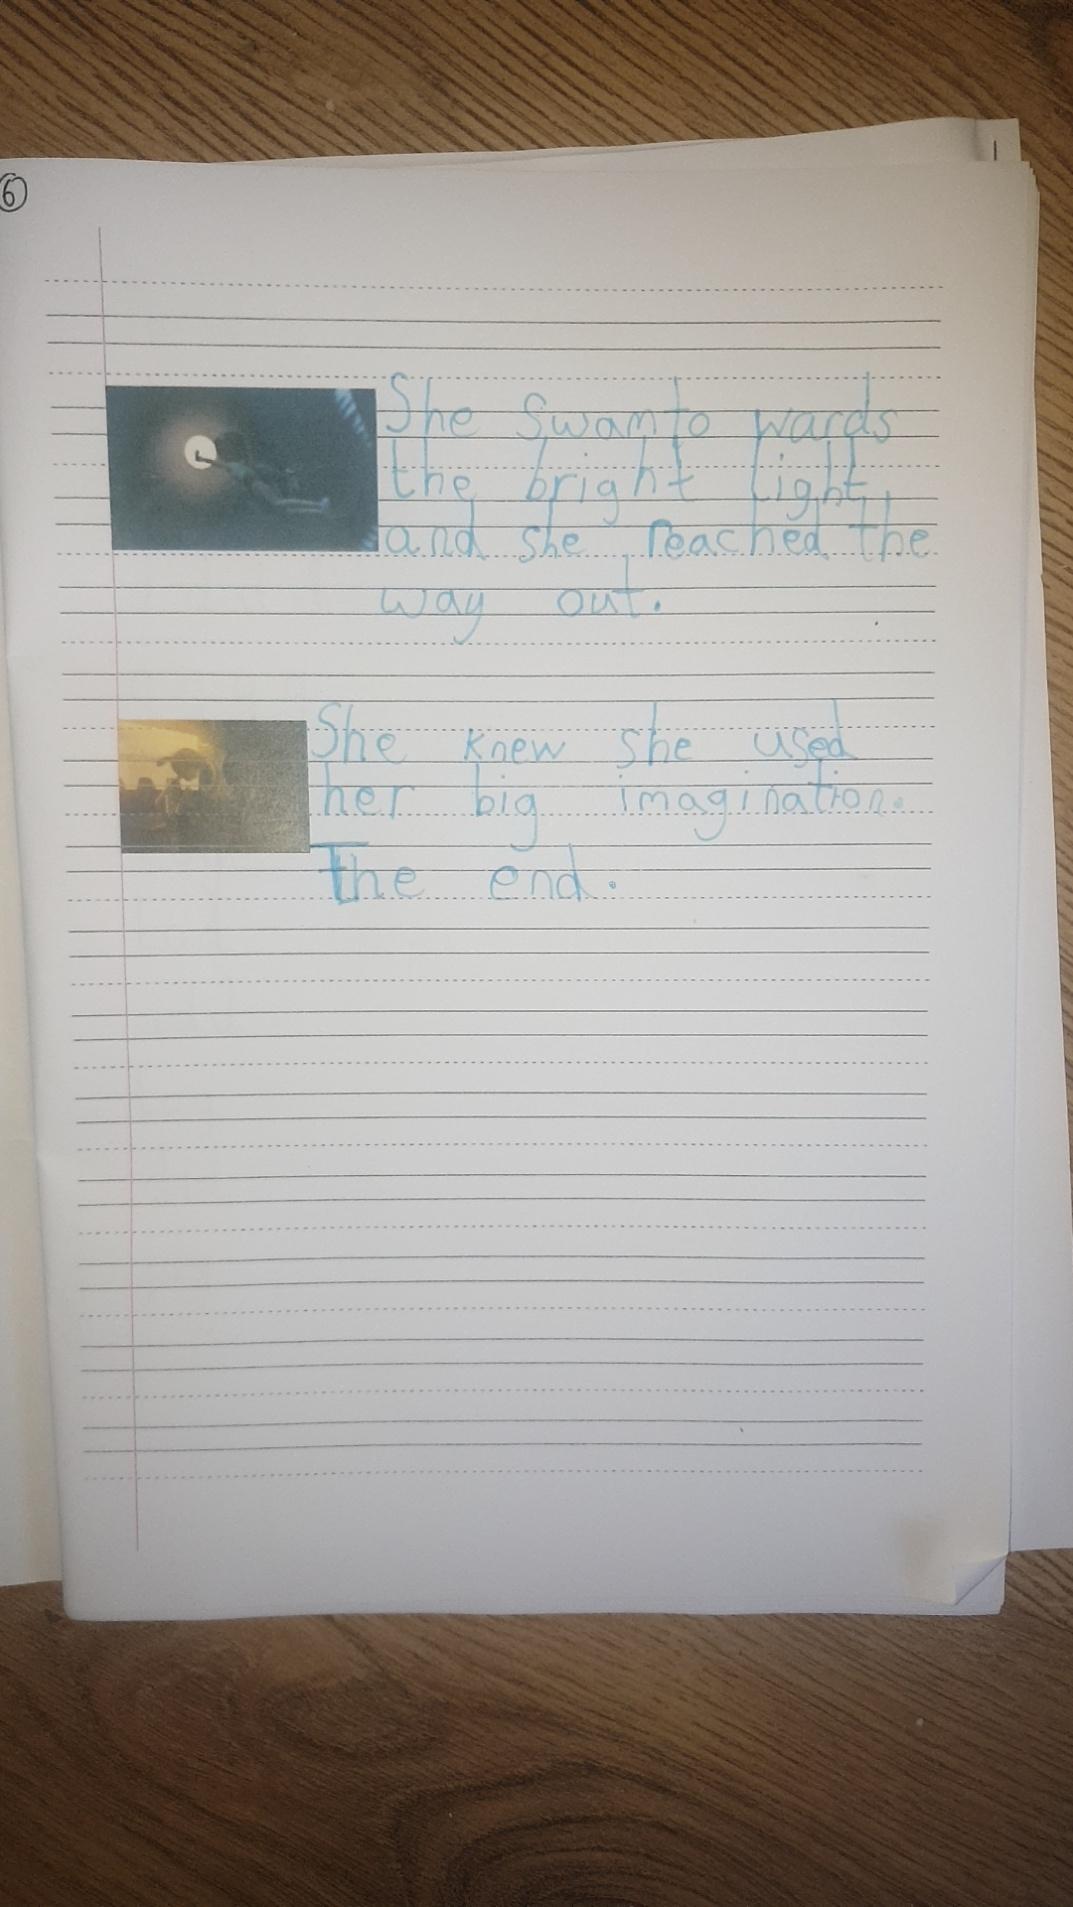 6
She Swamto wards
the bright light,
and she reached the
way out.
She knew she used
her big imagination.
The end.